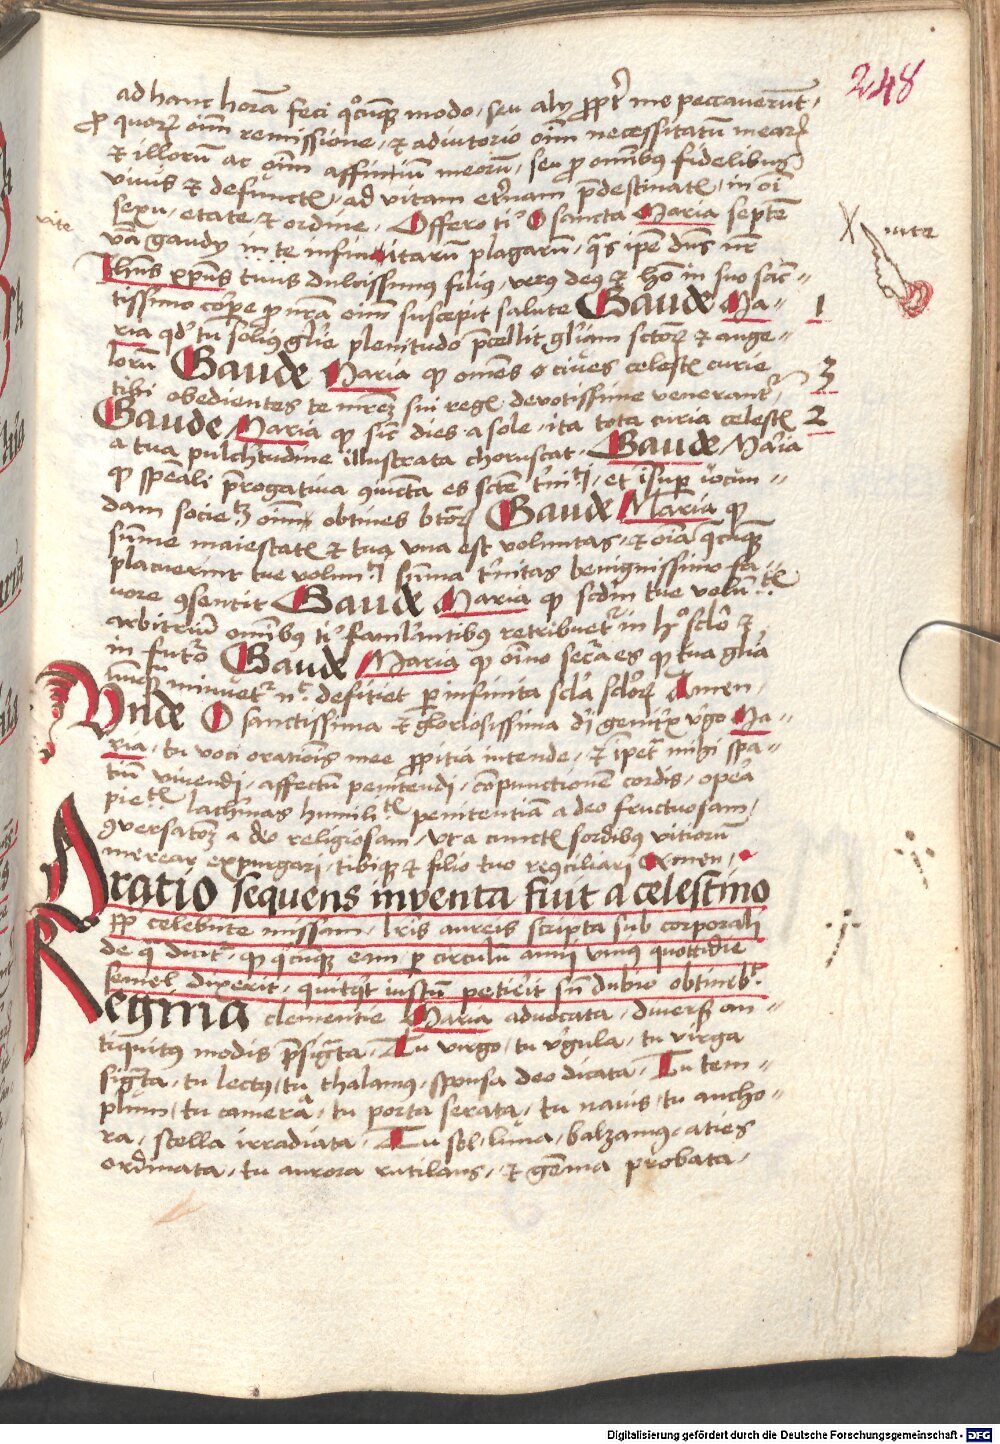 248
ad hanc horā feci qͦcūqꝫ modo, seu alij ꝓpt̄ me peccaverūt,
ꝓ quoꝝ oīm remissione, et adiutorio oīm necessitatū meaꝝ
et illorū ac oīm affiniū meorū, seu ꝓ omībus fidelibus
vivis et defunctꝭ, ad vitam et̄nam p̄destinatꝭ, in oī
sexu, etate et ordine, Offero tiᵇ O sancta Maria septē
vā gaudy in te infinitarū plagarū, q̄s ipē dn̄s nr̄
Ihūs xpūs tuus dulcissimus filius, verus deus et hō in suo sāc-
tissimo corpe ꝓ nr̄am oīm suscepit salute Gaude Ma-
ria qd' tu solius gl'ie plenitudo p̄cellit gl'iam sctoꝝ et ange-
lorū Gaude Maria qꝫ omēs cives celestꝭ curie
tibi obedientes te mr̄eꝫ sui regꝭ devotissime venerant'
Gaude Maria qꝫ sic dies a sole, ita tota curia celestꝭ
a tua pulch'tudine illustrata choruscat. Gaude Maria
qꝫ sp̄eali p̄rogativa ꝯiuncta es scte t'nitꝭ, et isuꝑ iocun-
dam societꝫ oīm obtines btoꝝ Gaude Maria qꝫ
sum̄e maiestatꝭ et tua una est voluntas, et oīa q̄cūqꝫ
placuerint tue volunꝭ suma t'nitas benignissimo fa-
vore ꝯsentit Gaude Maria qꝫ scdm tue volūꝭ
arbitriū omībus tiᵇ famlantibus retribuet' in hͦ sclo et
in futuro Gaude Maria qꝫ oīno secura es qꝫ tua gl'ia
nūqꝫ minuet' nͨ defitiet ꝑ infinita sclā scloꝝ Amen,
Unde O sanctissima et gloriosissima dī genit'x v'go Ma-
ria, tu voci orationis mee ꝓpitia intende, et īpet'a mihi spa-
tiū vivendi, affectū penitendi, cōpunctionē cordis, opera
pieꝭ lach'mas humiliꝭ penitentiā a deo fructuosam,
ꝯversatōꝫ a deo religiosam, ut a cunctꝭ sordibus vitiorū
merear expurgari, tibiqꝫ et filio tuo reꝯciliari Amen,
Oratio sequens inventa fuit a celestino
pp celebrāte missam, lr̄is aureis scripta sub corporali
de q̄ dicit', qꝫ q̄cūqꝫ eam ꝑ circulū anni unius quottidie
semel dixerit, quitqͭ iustū petierit sn̄ dubio obtinebͭ
Regina clementie Maria advocata, diversꝭ an-
tiquitus modis p̄signata, Tu virgo, tu v'gula, tu virga
signata, tu lectus, tu thalamus, sponsa deo dicata, Tu tem-
plum, tu camera, tu porta serata, tu navis, tu ancho-
ra, stella irradiata, Tu sol, luna, balzamus, aties
ordinata, tu aurora rutilans, et gēma probata,
1
3
2
Digitalisierung gefördert durch die Deutsche Forschungsgemeinschaft - DFG